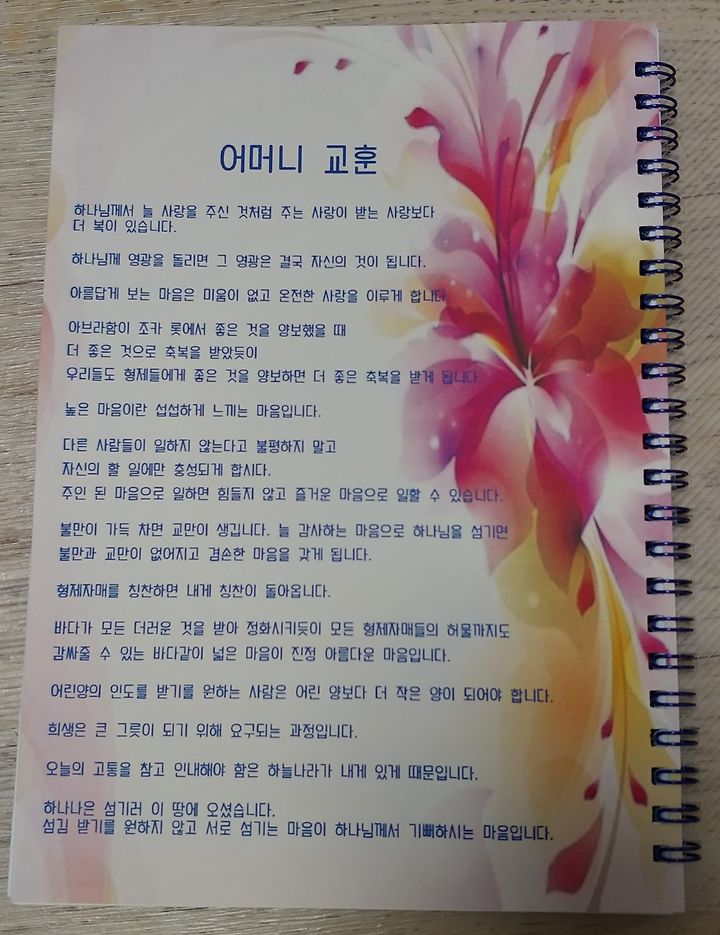 어머니 교훈
하나님께서 늘 사랑을 주신 것처럼 주는 사랑이 받는 사랑보다
더 복이 있습니다.
하나님께 영광을 돌리면 그 영광은 결국 자신의 것이 됩니다.
아름답게 보는 마음은 미움이 없고 온전한 사랑을 이루게 합니다.
아브라함이 조카 롯에게 좋은 것을 양보했을 때
더 좋은 것으로 축복을 받았듯이
우리들도 형제들에게 좋은 것을 양보하면 더 좋은 축복을 받게 됩니다.
높은 마음이란 섭섭하게 느끼는 마음입니다.
다른 사람들이 일하지 않는다고 불평하지 말고
자신의 할 일에만 충성되게 합시다.
주인 된 마음으로 일하면 힘들지 않고 즐거운 마음으로 일할 수 있습니다.
불만이 가득 차면 교만이 생깁니다. 늘 감사하는 마음으로 하나님을 섬기면
불만과 교만이 없어지고 겸손한 마음을 갖게 됩니다.
형제자매를 칭찬하면 내게 칭찬이 돌아옵니다.
바다가 모든 더러운 것을 받아 정화시키듯이 모든 형제자매들의 허물까지도
감싸줄 수 있는 바다같이 넓은 마음이 진정 아름다운 마음입니다.
어린양의 인도를 받기를 원하는 사람은 어린 양보다 더 작은 양이 되어야 합니다.
희생은 큰 그릇이 되기 위해 요구되는 과정입니다.
오늘의 고통을 참고 인내해야 함은 하늘나라가 내게 있게 때문입니다.
하나나은 섬기러 이 땅에 오셨습니다.
섬김 받기를 원하지 않고 서로 섬기는 마음이 하나님께서 기뻐하시는 마음입니다.